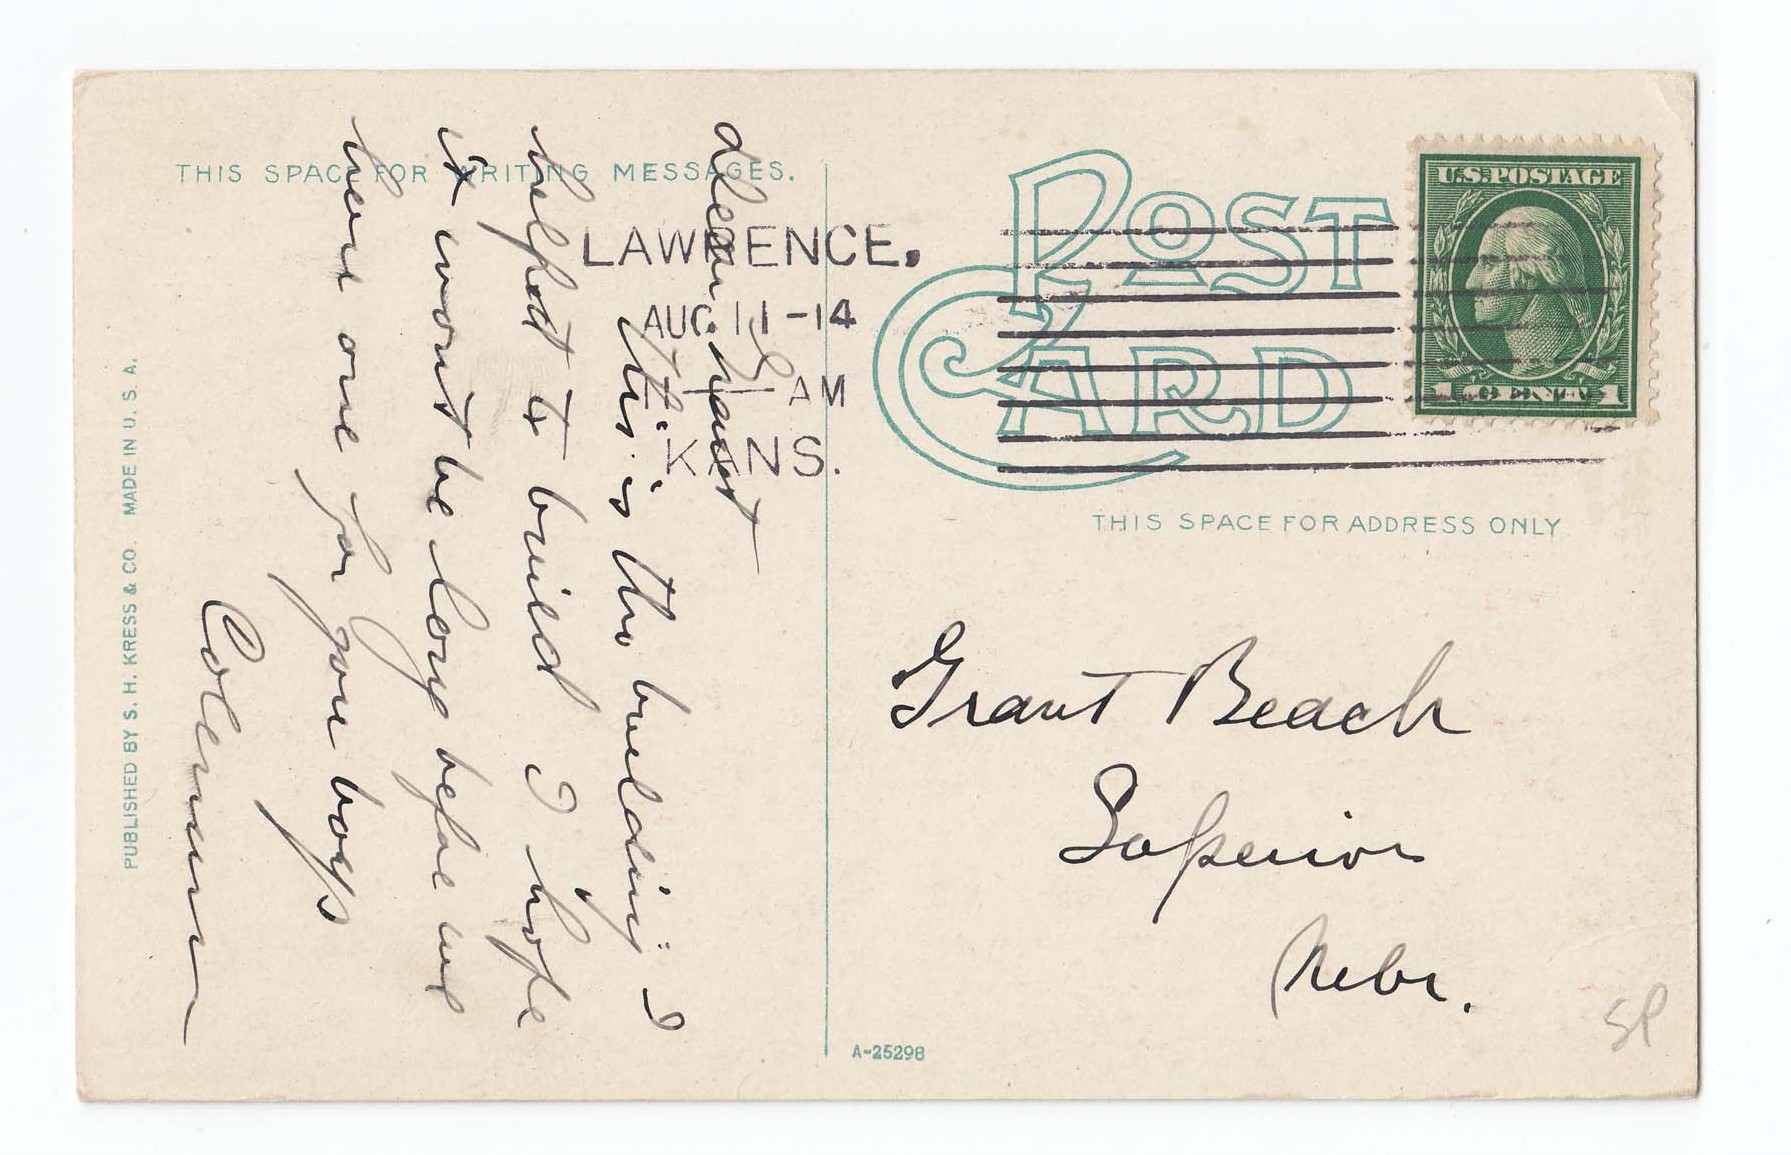 THIS SPACE FOR WRITING MESSAGES.
POST CARD
U.S. POSTAGE
1 CENT 1
LAWRENCE.
AUG. 11-14
AM
KANS.
THIS SPACE FOR ADDRESS ONLY
Grant Beach
Superior
Nebr.
dear
this is the building I
helped to build I hope
it wont be long before we
have one for you boys
Coleman
PUBLISHED BY S. H. KRESS & CO. MADE IN U. S. A.
A-25298